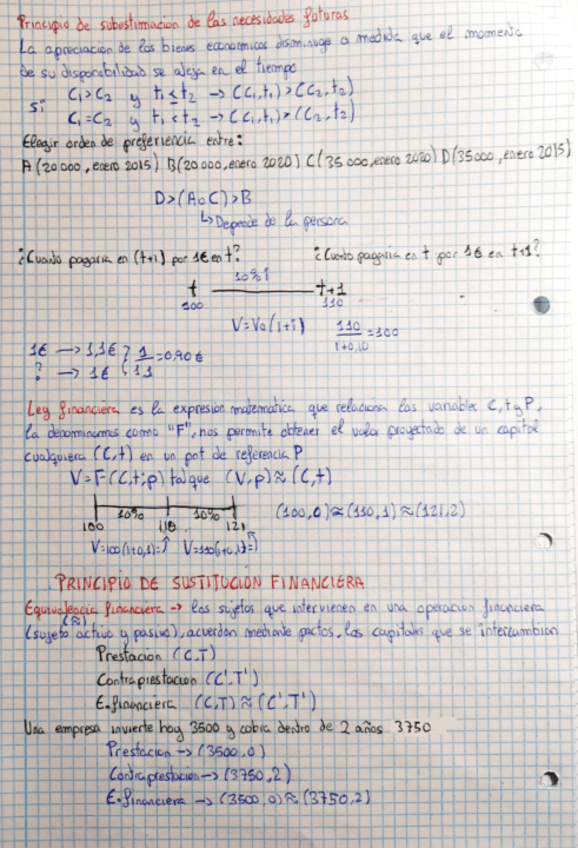 Principio de subestimacion de las necesidades futuras
La apreciación de los bienes economicos disminuye a medida que el momento
de su disponibilidad se aleja en el tiempo
Si C₁>C₂ y t₁≤t₂ → (C₁,t₁)>(C₂,t₂)
C₁=C₂ y t₁<t₂ → (C₁,t₁)>(C₂,t₂)
Elegir orden de preferiencia entre:
A(20 000, enero 2015) B(20 000, enero 2020) C(35 000, enero 2020) D(35000, enero 2015)
D>(AoC)>B
↳ Depende de la persona
¿Cuanto pagaria en (t+1) por 1€ en t? ¿Cuanto pagaria en t por 1€ en t+1?
10% i
t t+1
100 110
V=V₀(1+i) 110/1+0,10 =100
1€ → 1,1€ } 1/1,1 =0,90€
? → 1€
Ley financiera es la expresión matematica que relaciona las variables C, t y P,
la denominamos como "F", nos permite obtener el valor proyectado de un capital
cualquiera (C,t) en un pnt de referencia P
V=F(C,t;p) tal que (V,p)≈(C,t)
10% 10% (100,0)≈(110,1)≈(121,2)
100 110 121
V=100(1+0,1)=↑ V=110(1+0,1)=↑
PRINCIPIO DE SUSTITUCION FINANCIERA
Equivalencia financiera → los sujetos que intervienen en una operacion financiera
(≈)
(sujeto activo y pasivo), acuerdan mediante pactos, los capitales que se intercambian
Prestacion (C,T)
Contraprestacion (C',T')
E.financiera (C,T)≈(C',T')
Una empresa invierte hoy 3500 y cobra dentro de 2 años 3750
Prestacion → (3500,0)
Contraprestacion → (3750,2)
E.financiera → (3500,0)≈(3750,2)